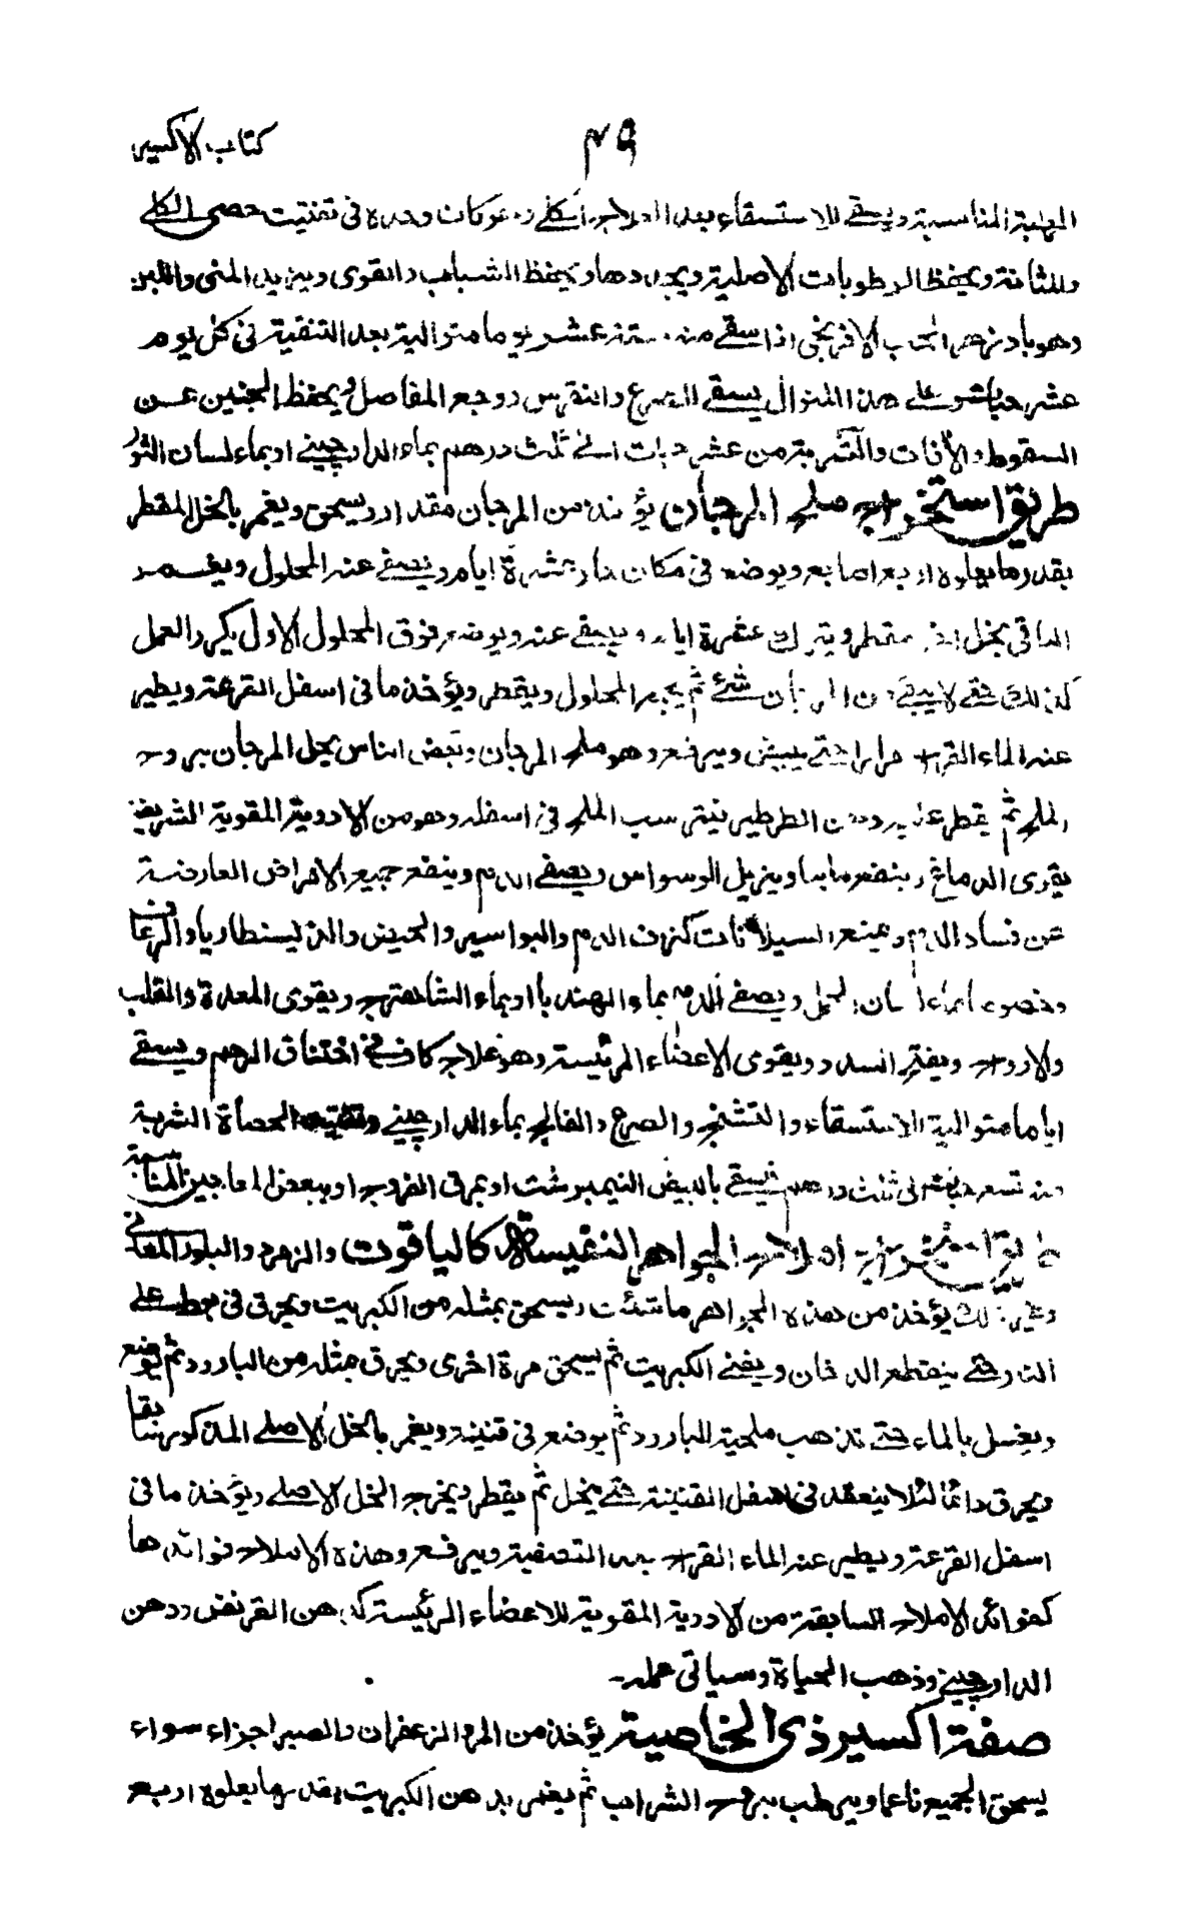 ٤٩ كتاب الاكسير
المناسبة ويسقى للاستسقاء بعد وحده فى تفتيت حصى الكلى
والمثانة ويحفظ الرطوبات الاصلية ويحفظ الشباب والقوى ويزيد المنى واللبن
وهو بادزهر الحب الافرنجى اذا سقى منه ستة عشر يوما متوالية بعد التنقية فى كل يوم
عشر حبات وعلى هذا المنوال يسقى للصرع والنقرس ووجع المفاصل ويحفظ الجنين عن
السقوط والآفات والشربة من عشر حبات الى ثلث درهم بماء الدارچينى او بماء لسان الثور
طريق استخراج ملح المرجان يؤخذ من المرجان مقدار ويسحق ويغمر بالخل المقطر
بقدر ما يعلوه اربع اصابع ويوضع فى مكان حار عشرة ايام ويصفى عنه المحلول ويغمر
الباقى بخل اخر مقطر ويترك عشرة ايام ويصفى عنه ويوضع فوق المحلول الاول يكرر العمل
كذلك حتى لا يبقى من المرجان شئ ثم يجمع المحلول ويقطر ويؤخذ ما فى اسفل القرعة ويطير
عنه الماء القراح مرارا حتى يبيض ويرفع وهو ملح المرجان وبعض الناس يحل المرجان بروح
الملح ثم يقطر عليه دهن الطرطير فيترسب الملح فى اسفله وهو من الادوية المقوية الشريفة
يقوى الدماغ وينفعه ويزيل الوسواس ويصفى الدم وينفع جميع الامراض العارضة
عن فساد الدم ويمنع السيلانات كنزف الدم والبواسير والحيض والذيسنطاريا والرعاف
وخصوصا بماء لسان الحمل ويصفى الدم بماء الهندبا او بماء الشاهترج ويقوى المعدة والقلب
والارواح ويفتح السدد ويقوى الاعضاء الرئيسة وهو علاج كاف فى اختناق الرحم ويسقى
اياما متوالية للاستسقاء والتشنج والصرع والفالج بماء الدارچينى وتفتيت الحصاة الشربة
منه تسع حبات الى ثلث درهم فيسقى بالبيض النيمبرشت او بمرق الفروج او ببعض المعاجين المناسبة
طريق استخراج املاح الجواهر النفيسة كالياقوت والزمرد والبلور المعدنى
وغير ذلك يؤخذ من هذه الجواهر ما شئت ويسحق بمثله من الكبريت ويحرق فى بوطة على
النار حتى ينقطع الدخان ويفنى الكبريت ثم يسحق مرة اخرى ويحرق بمثله من البارود ثم يوضع
ويغسل بالماء حتى تذهب ملحية البارود ثم يوضع فى قنينة ويغمر بالخل الاصلى المذكور سابقا
ويحرق دائما لئلا ينعقد فى اسفل القنينة حتى يخل ثم يقطر ويخرج الخل الاصلى ويؤخذ ما فى
اسفل القرعة ويطير عنه الماء القراح بعد التصفية ويرفع وهذه الاملاح فوائدها
كفوائد الاملاح السابقة من الادوية المقوية للاعضاء الرئيسة كدهن القرنفل ودهن
الدارچينى وذهب الحياة وسياتى عمله
صفة اكسير ذى الخاصية يؤخذ من المر والزعفران والصبر اجزاء سواء
يسحق الجميع ناعما ويرطب بروح الشراب ثم يغمر بدهن الكبريت بقدر ما يعلوه اربع